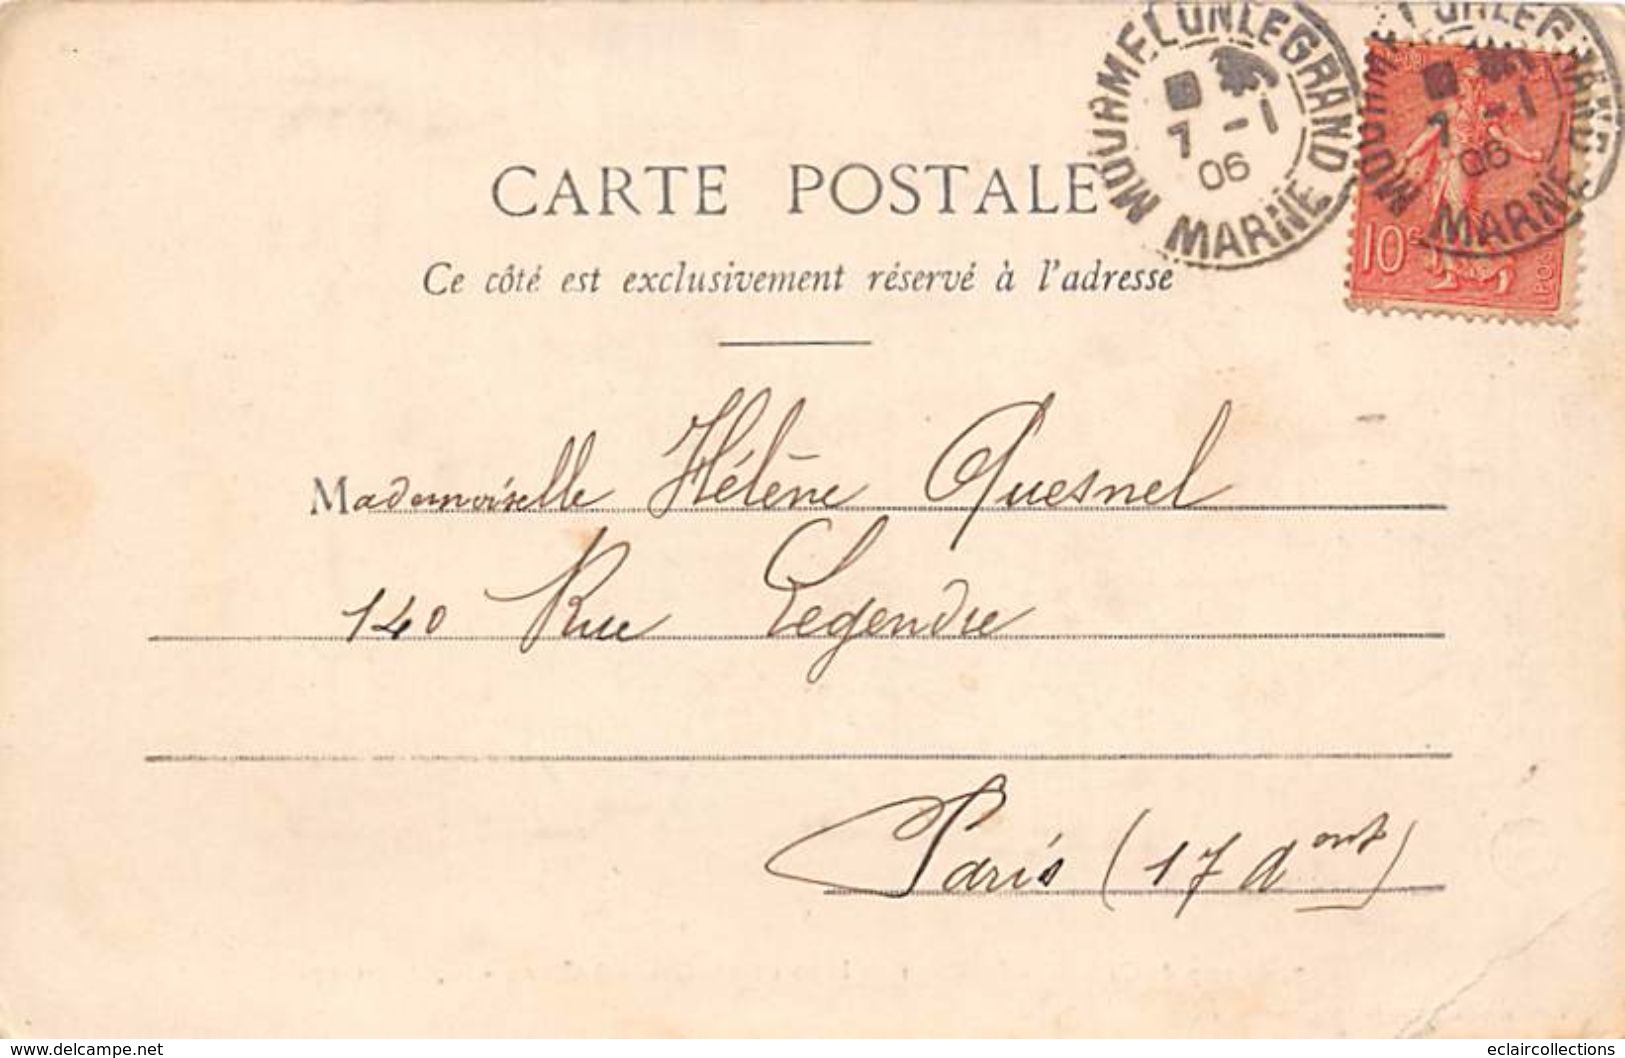 MOURMELON LE GRAND
7 -1
06
MARNE
7 -1
06
MARNE
10c
CARTE POSTALE
Ce côté est exclusivement réservé à l'adresse
Mademoiselle Hélène Quesnel
140 Rue Legendre
Paris (17 dont)
www.delcampe.net
eclaircollections